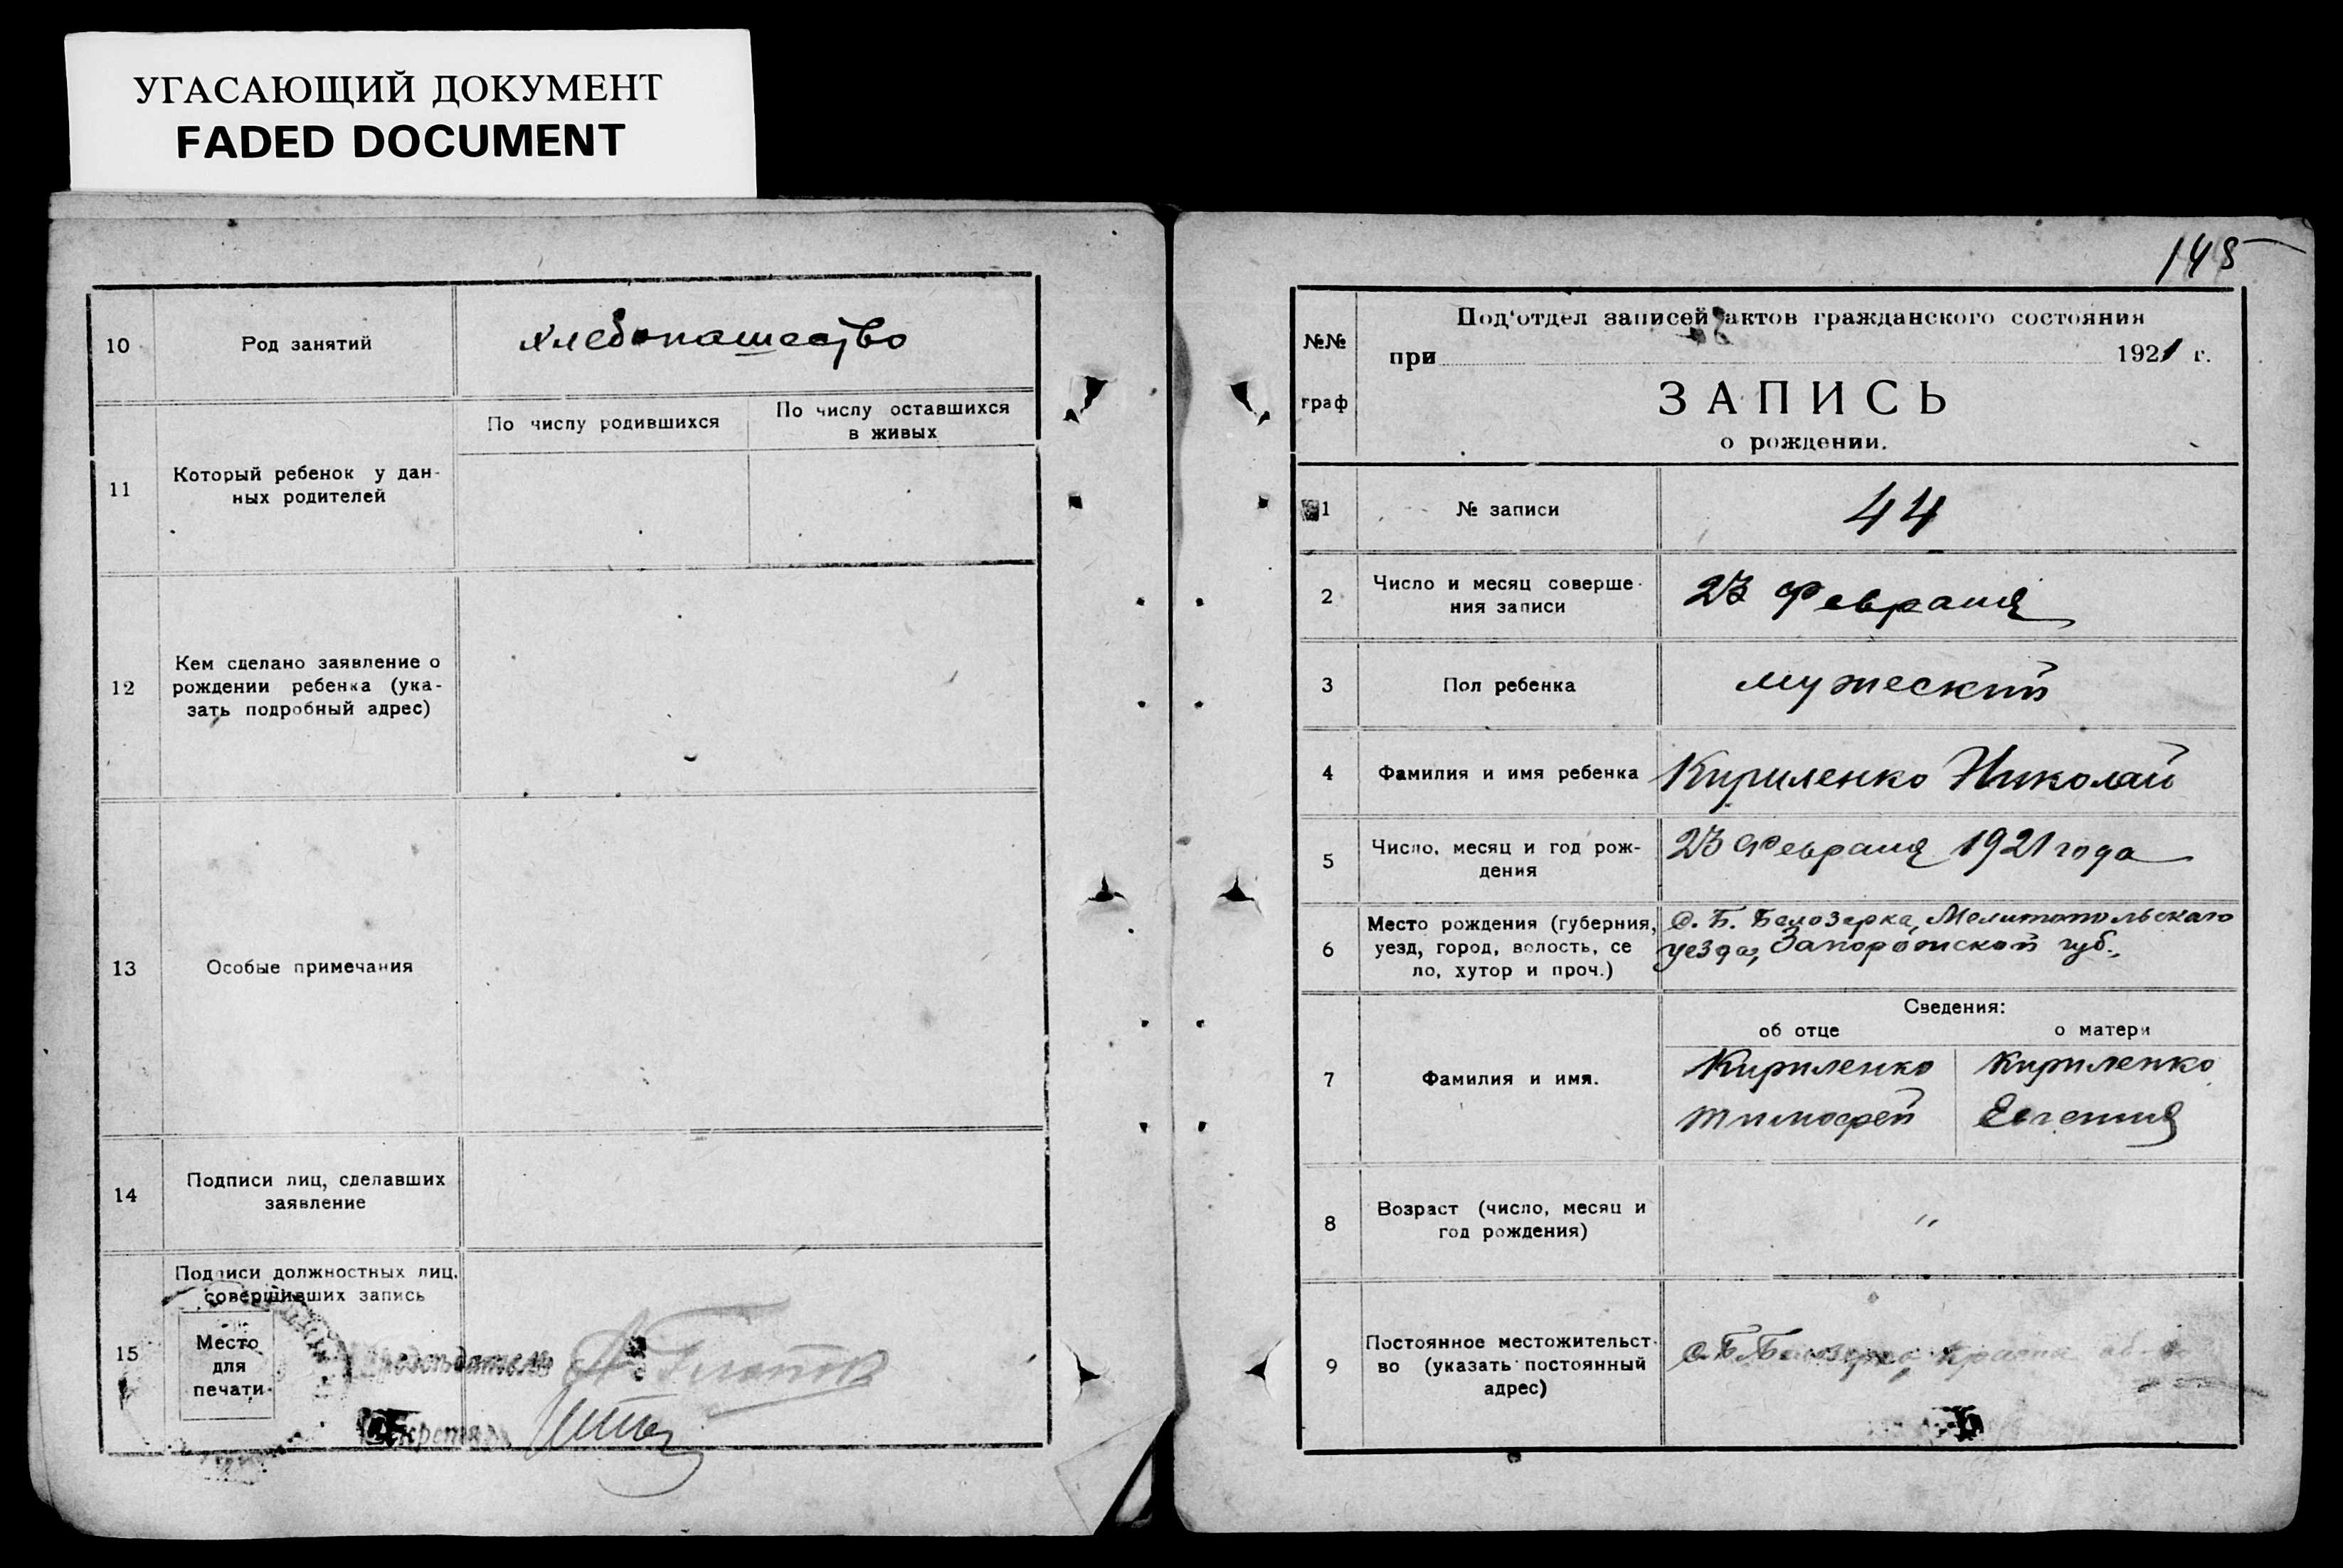 УГАСАЮЩИЙ ДОКУМЕНТ
FADED DOCUMENT
10 Род занятий хлебопашество
11 Который ребенок у дан-
ных родителей
По числу родившихся
По числу оставшихся
в живых
12 Кем сделано заявление о
рождении ребенка (ука-
зать подробный адрес)
13 Особые примечания
14 Подписи лиц, сделавших
заявление
15 Подписи должностных лиц,
совершивших запись
Место
для
печати
Председатель
Секретарь
148
№№
граф
Под'отдел записей актов гражданского состояния
при 1921 г.
ЗАПИСЬ
о рождении.
1 № записи 44
2 Число и месяц соверше-
ния записи
23 Февраля
3 Пол ребенка мужеский
4 Фамилия и имя ребенка Кириленко Николай
5 Число, месяц и год рож-
дения
23 Февраля 1921 года
6 Место рождения (губерния,
уезд, город, волость, се
ло, хутор и проч.)
С. Б. Белозерка, Мелитопольскаго
уезда, Запорожской губ.
Сведения:
об отце о матери
7 Фамилия и имя.
Кириленко
Тимофей
Кириленко
Евгения
8 Возраст (число, месяц и
год рождения)
"
9 Постоянное местожительст-
во (указать постоянный
адрес)
с. Б. Белозерка